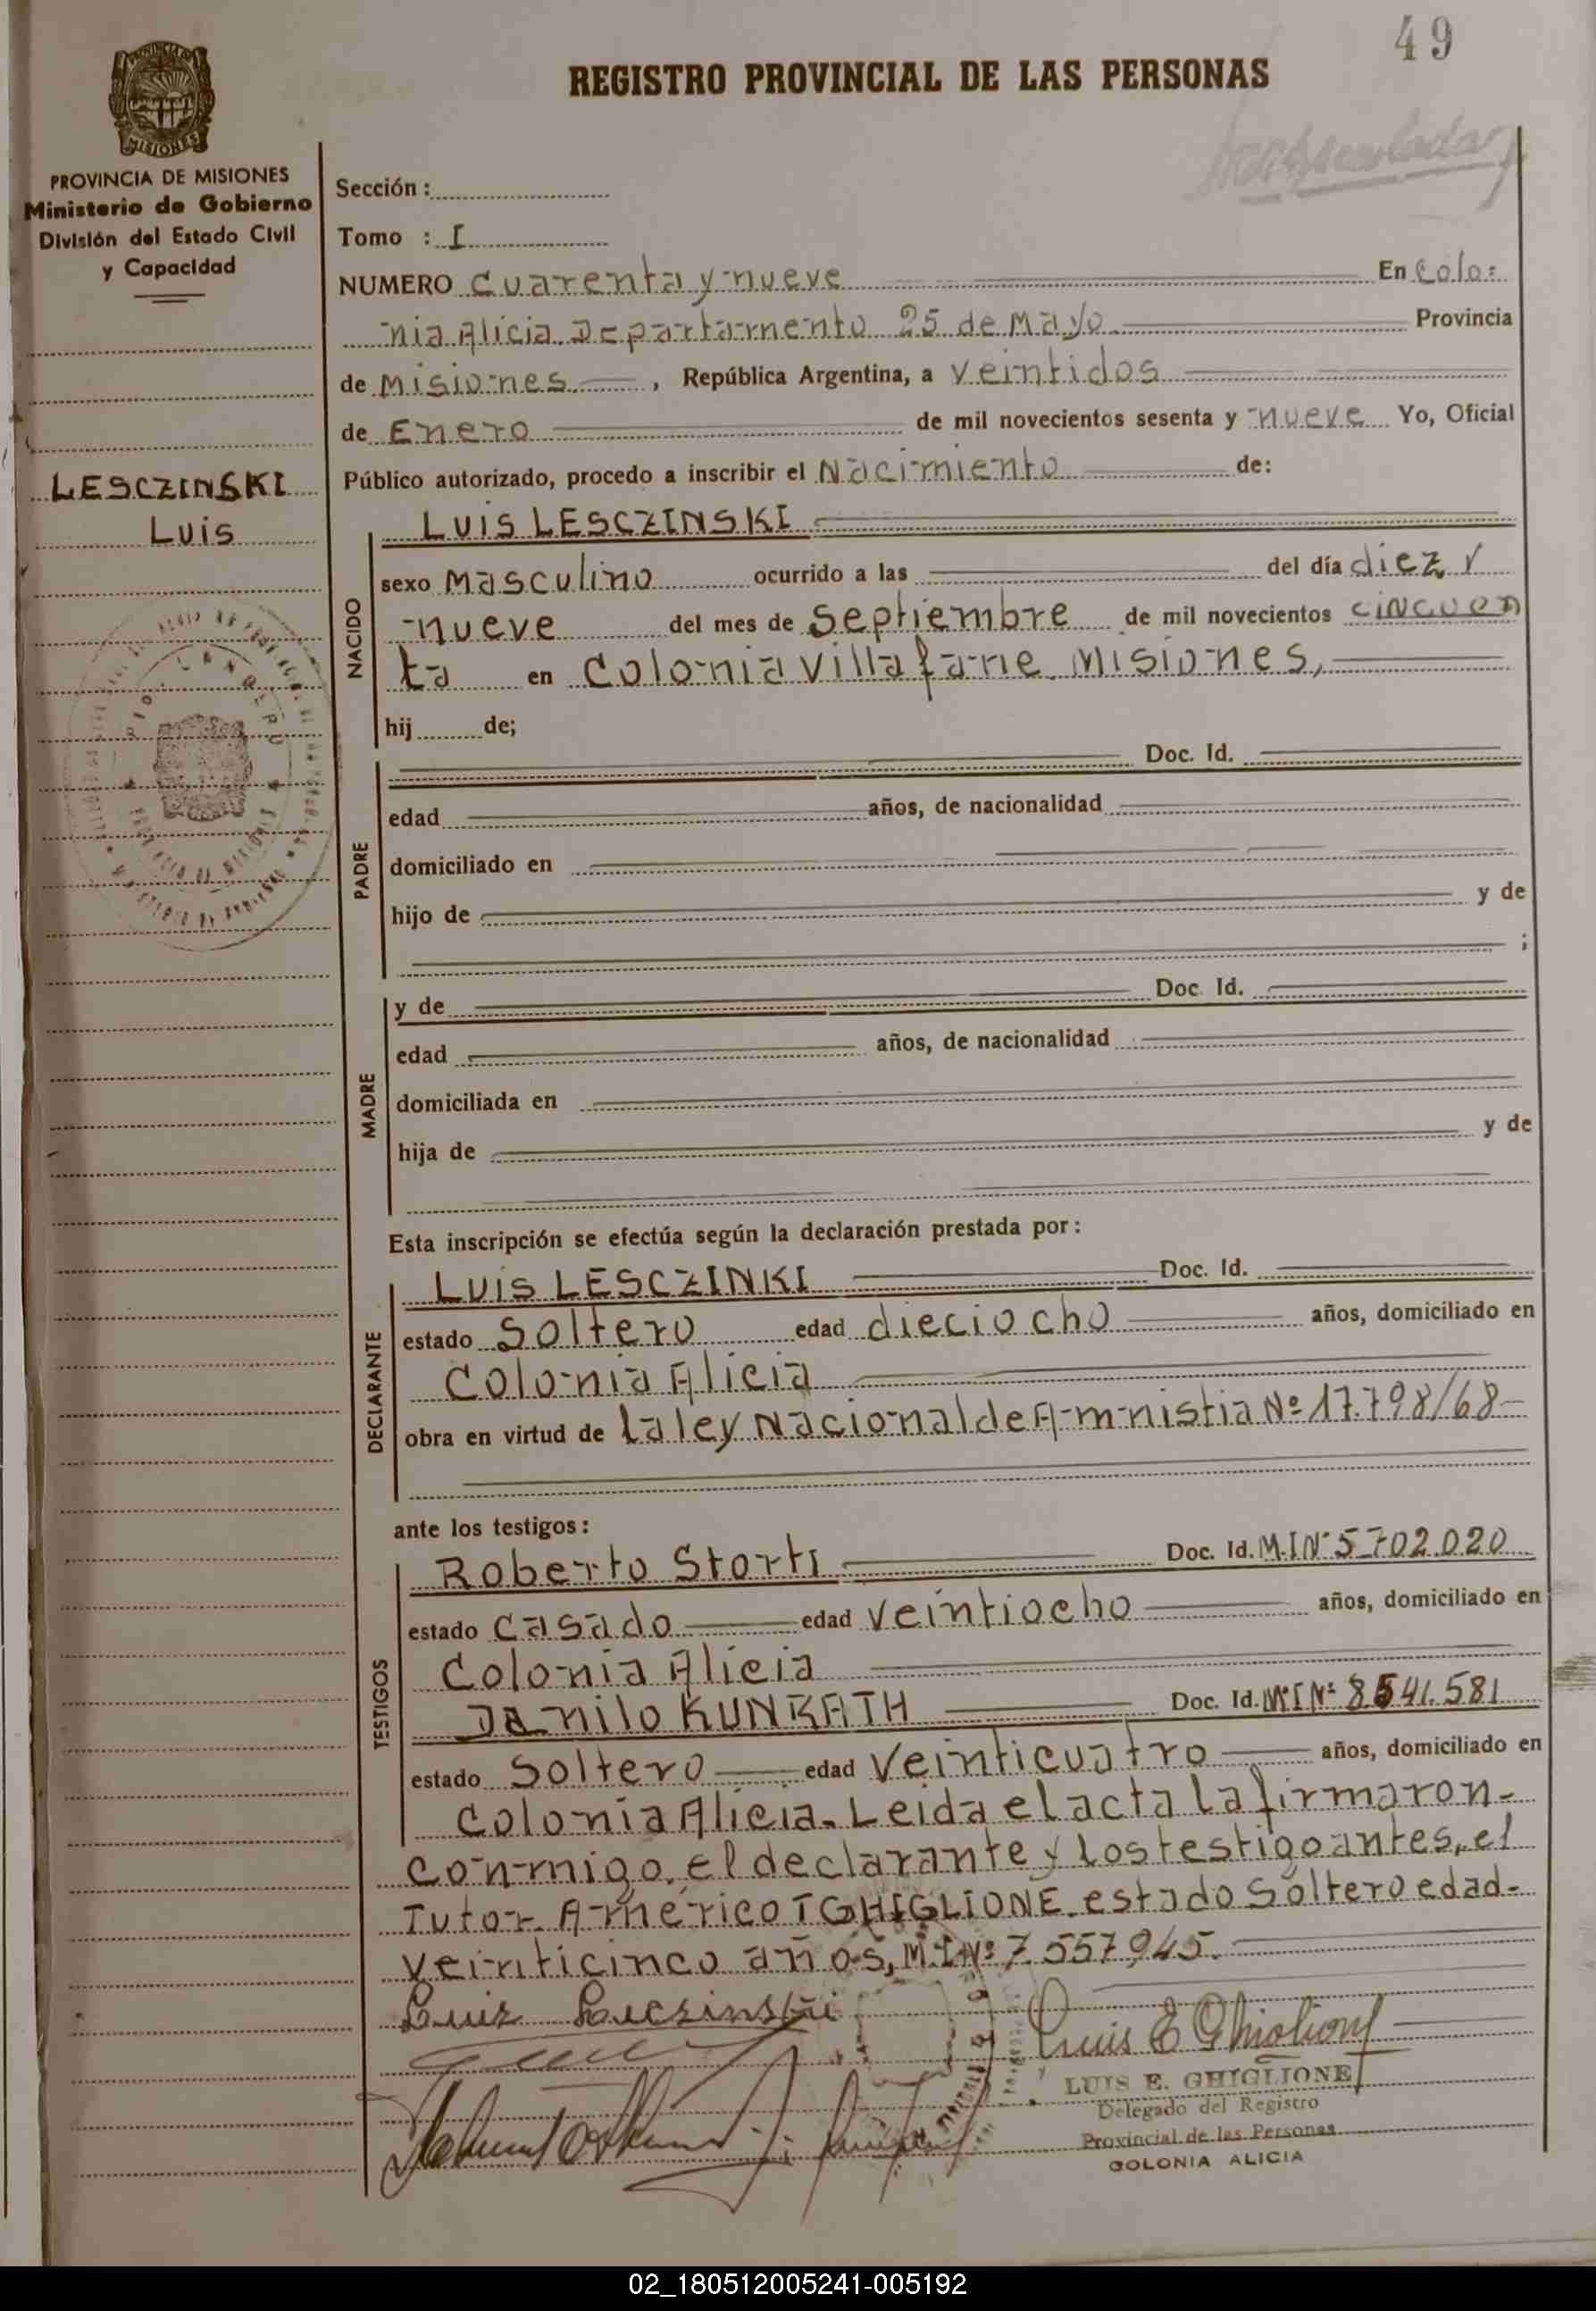 49
REGISTRO PROVINCIAL DE LAS PERSONAS
MISIONES
PROVINCIA DE MISIONES
Ministerio de Gobierno
División del Estado Civil
y Capacidad
Sección :
Tomo : I
NUMERO Cuarenta y nueve En Colo=
nia Alicia. Departamento 25 de Mayo Provincia
de Misiones , República Argentina, a veintidos
de Enero de mil novecientos sesenta y nueve Yo, Oficial
Público autorizado, procedo a inscribir el Nacimiento de:
LESCZINSKI
Luis
NACIDO
LUIS LESCZINSKI
sexo Masculino ocurrido a las del día diez y
nueve del mes de Septiembre de mil novecientos cincuen
ta en Colonia Villafane. Misiones,
hij de;
PADRE
Doc. Id.
edad años, de nacionalidad
domiciliado en
hijo de y de
;
MADRE
y de Doc. Id.
edad años, de nacionalidad
domiciliada en
hija de y de
Esta inscripción se efectúa según la declaración prestada por :
DECLARANTE
LUIS LESCZINKI Doc. Id.
estado Soltero edad dieciocho años, domiciliado en
Colonia Alicia
obra en virtud de la ley Nacional de A-mnistia Nº 17.798/68-
ante los testigos :
TESTIGOS
Roberto Storti Doc. Id. M.I Nº 5702.020
estado Casado edad veintiocho años, domiciliado en
Colonia Alicia
Danilo KUNRATH Doc. Id. M.I Nº 8541.581
estado Soltero edad Veinticuatro años, domiciliado en
Colonia Alicia. Leida el acta la firmaron-
conmigo. el declarante y los testigo antes, el
Tutor Américo I GHIGLIONE. estado Soltero edad-
veinticinco años, M.I Nº 7557945.
Luis Lesczinski
Luis E Ghiglione
LUIS E. GHIGLIONE
Delegado del Registro
Provincial de las Personas
COLONIA ALICIA
02_180512005241-005192